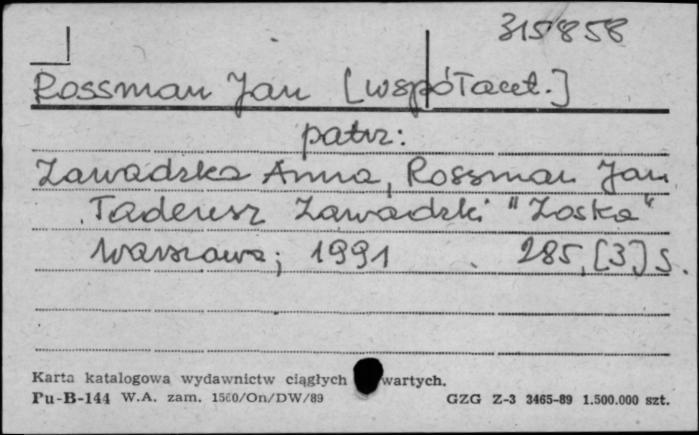 315858
Rossman Jan [współaut.]
patrz:
Zawadzka Anna, Rossman Jan
Tadeusz Zawadzki "Zośka"
Warszawa; 1991 285, [3] s.
Karta katalogowa wydawnictw ciągłych wartych.
Pu-B-144 W.A. zam. 1560/On/DW/89 GZG Z-3 3465-89 1.500.000 szt.